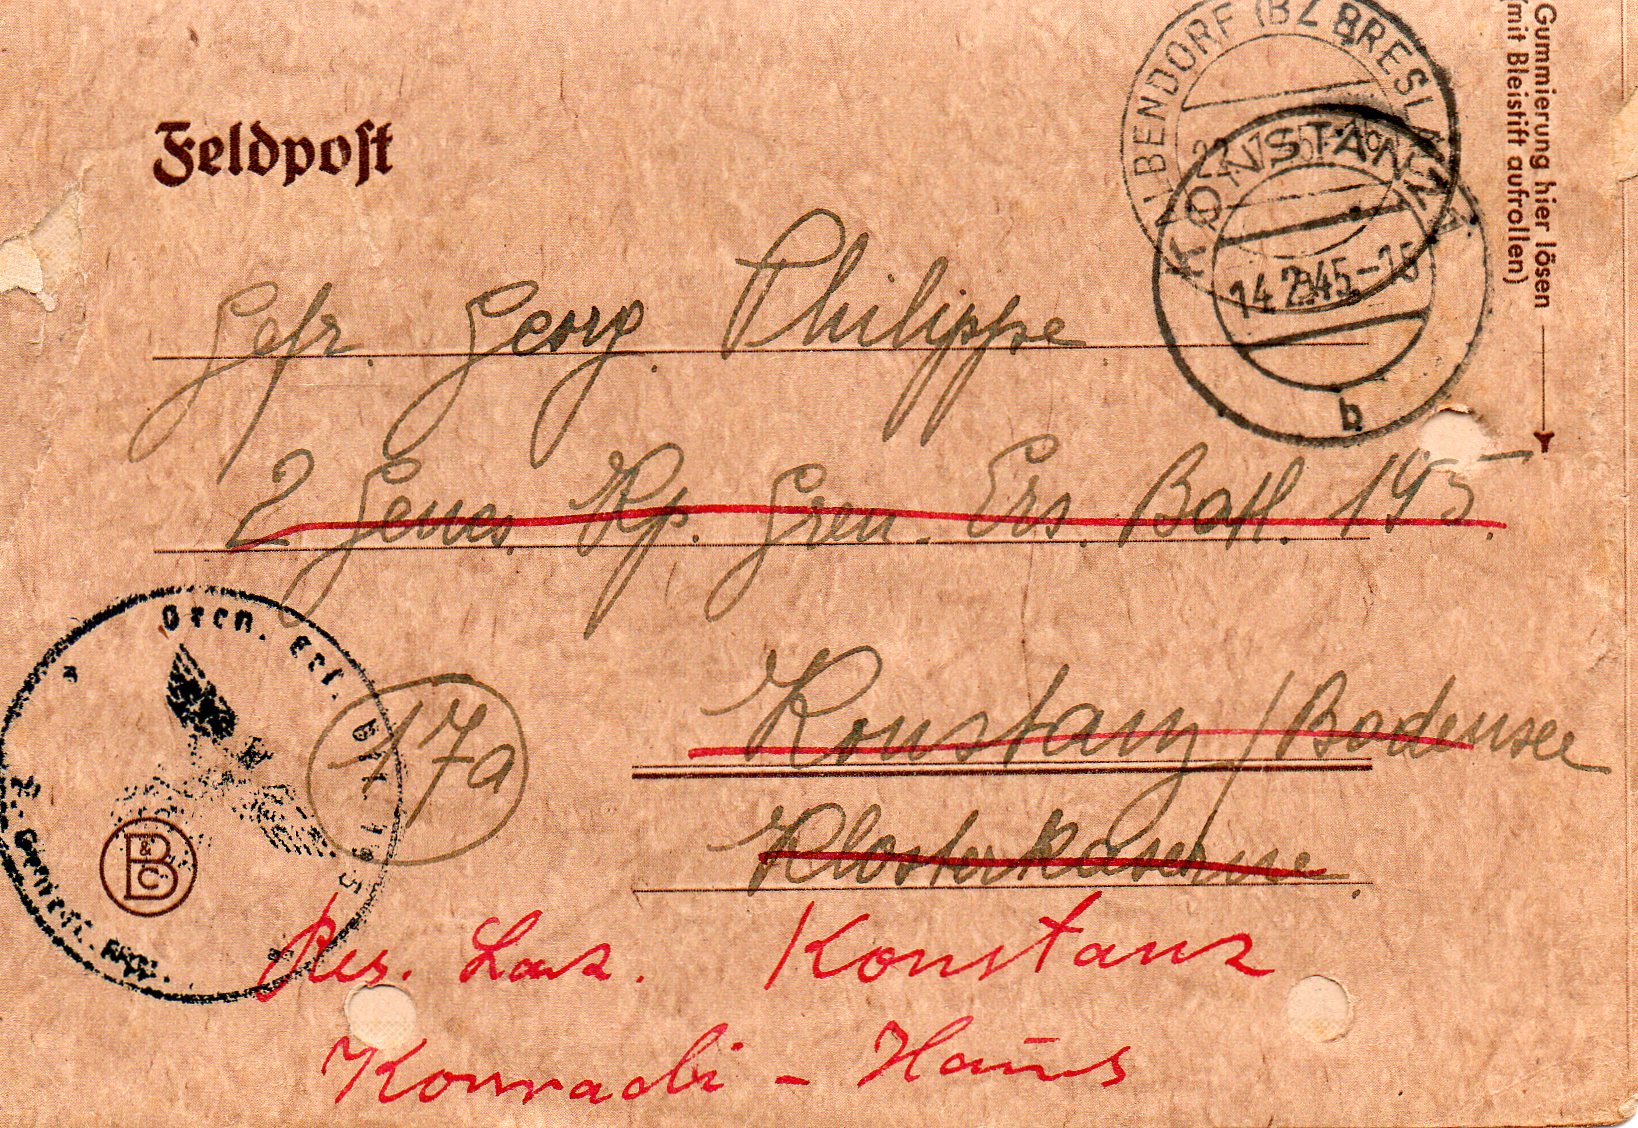 Feldpost
ALBENDORF (BZ BRESLAU)
Gummierung hier lösen
(mit Bleistift aufrollen)
KONSTANZ
14.2.45.-15
b
Gefr. Georg Philippe
2 Genes. Kp. Gren. Ers. Batl. 195.
Gren. Ers. Btl. 195
2. Genes. Kp.
17a
Konstanz / Bodensee
Klosterkaserne.
B&C
Res. Laz. Konstanz
Konradi - Haus